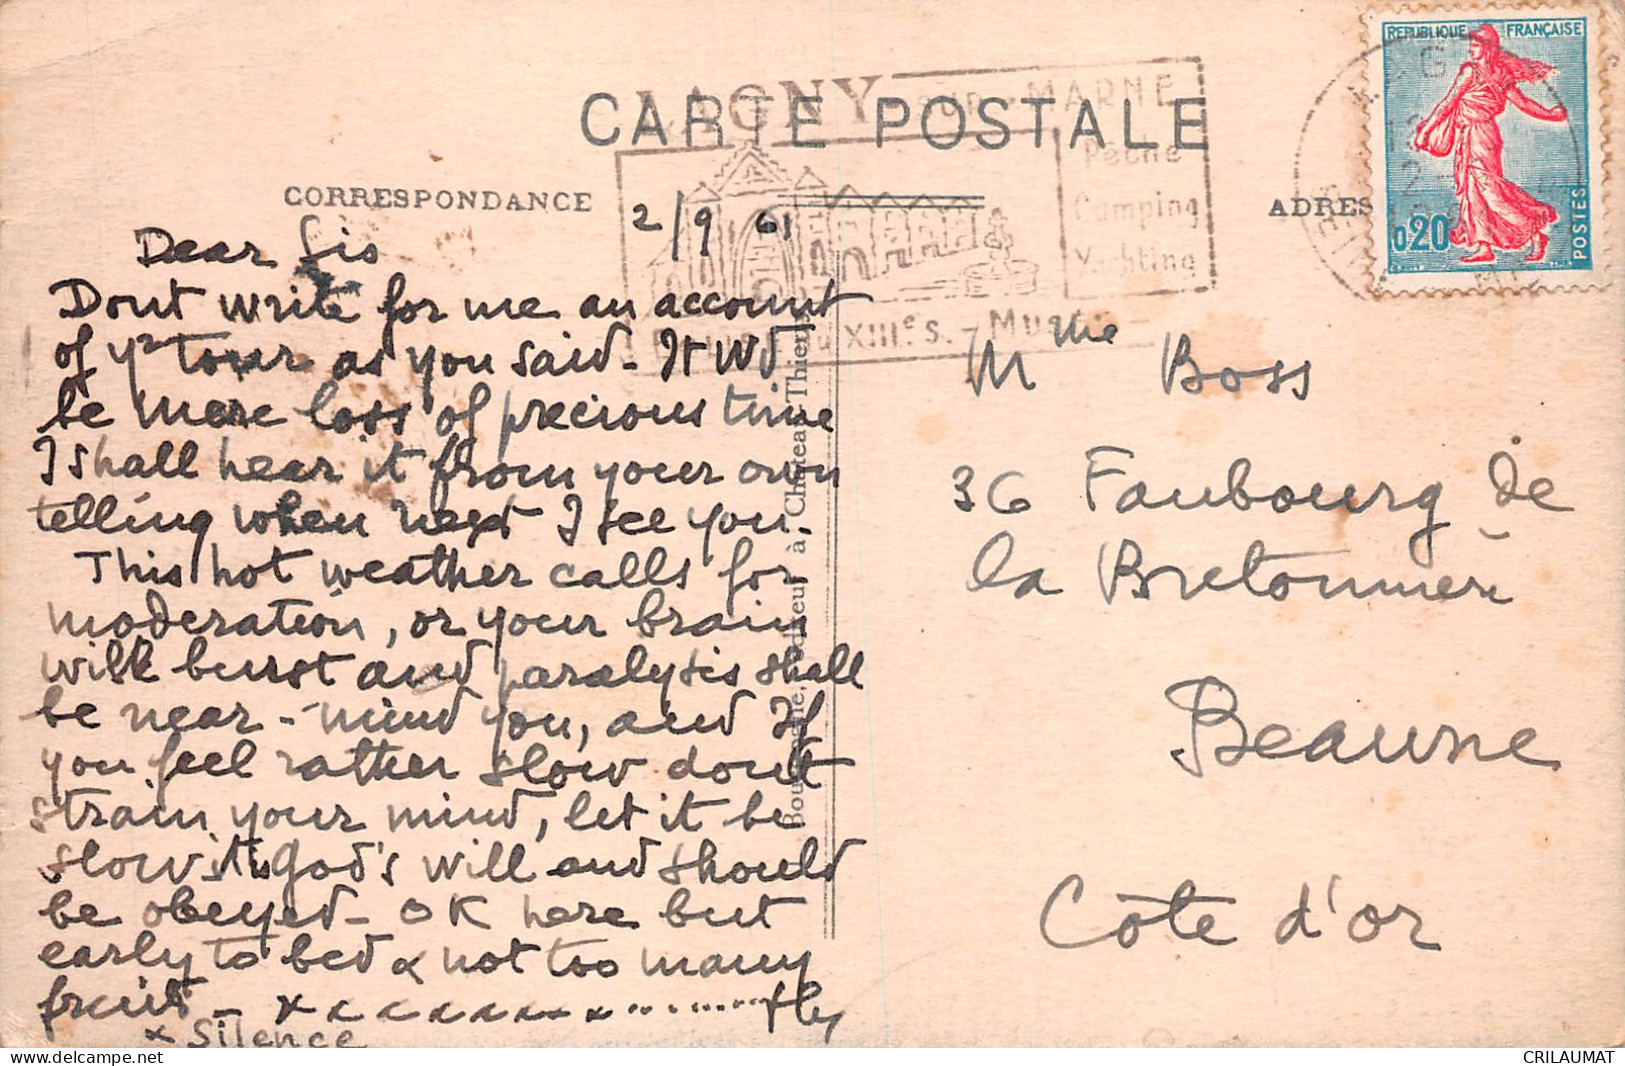 CARTE POSTALE
CORRESPONDANCE
ADRES
LAGNY sur MARNE
Pêche
Camping
Yachting
XIIIe S. -
REPUBLIQUE FRANÇAISE
0,20
POSTES
2/9 61
Dear Sis
Dont write for me an account
of yr tour as you said - It wd
be mere loss of precious time
I shall hear it from your own
telling when next I see you.
This hot weather calls for
moderation, or your brain
will burst and paralysis shall
be near - mind you, and If
you feel rather slow dont
strain your mind, let it be
slow itis God's will and should
be obeyed - OK here but
early to bed & not too many
fruit -
x Silence
Mme Boss
36 Faubourg de
la Bretonnière
Beaune
Côte d'or
éditeur à Château-Thierry
CRILAUMAT